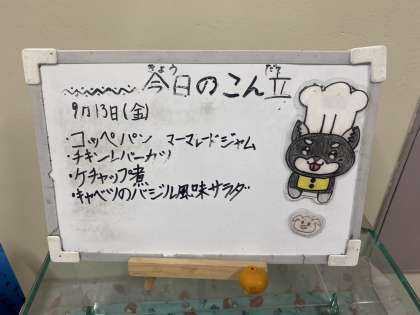 今日のこん立
きょう だて
9月13日(金)
・コッペパン マーマレードジャム
・チキンレバーカツ
・ケチャップ煮
・キャベツのバジル風味サラダ